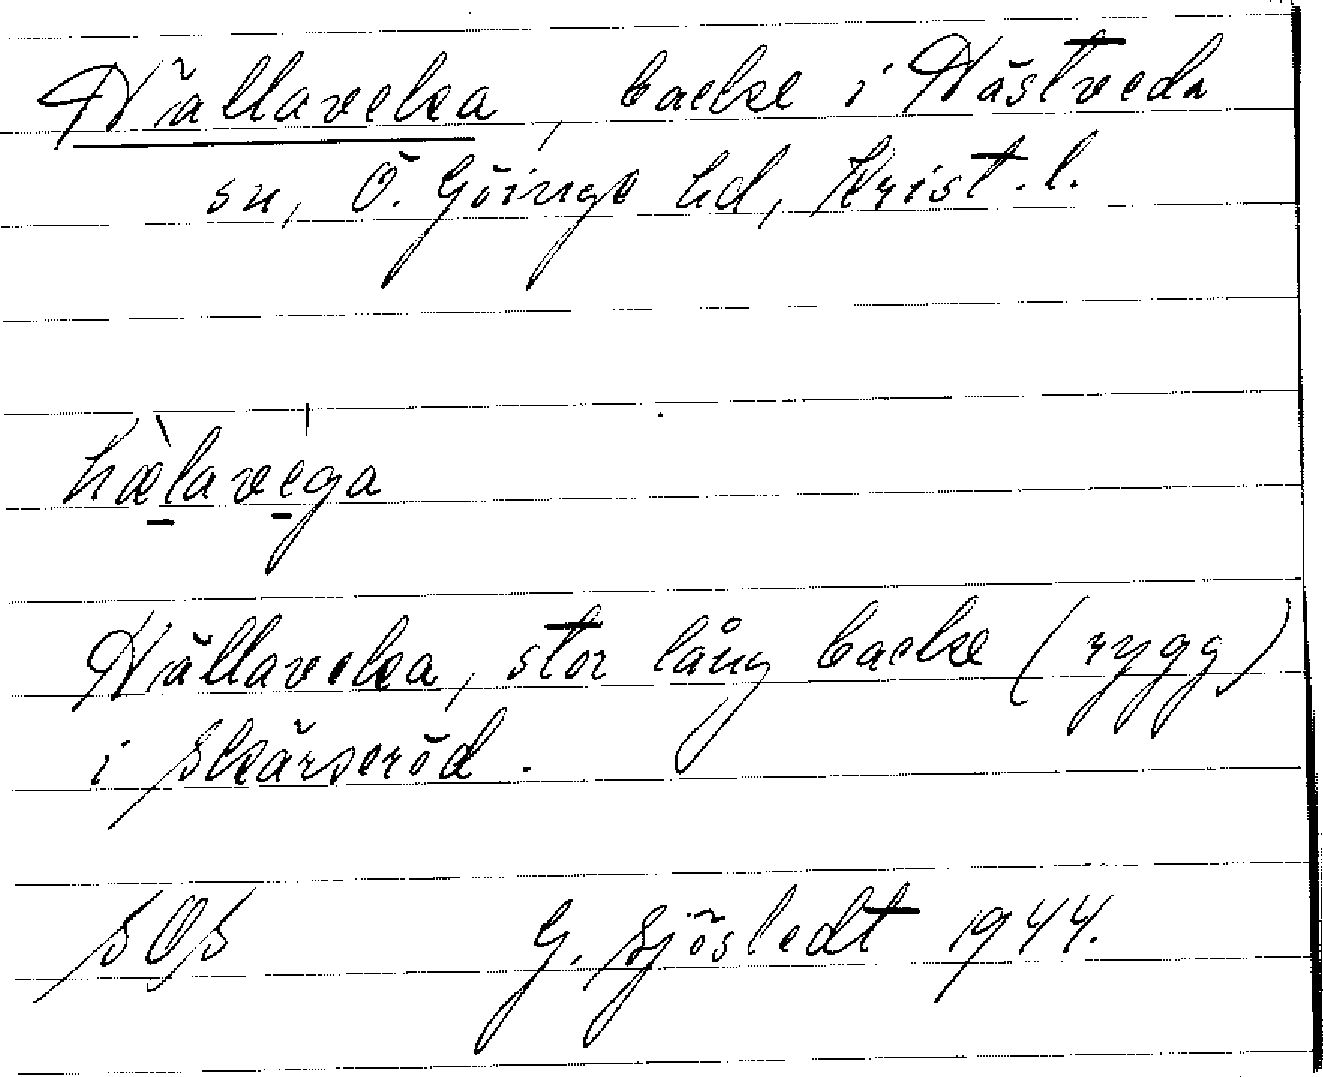 Hällaveka, backe i Hästveda
sn, Ö. Göinge hd, Krist. l.
hæ̀lavéga
Hällaveka, stor lång backe (rygg)
i Skärseröd.
SOS G. Sjöstedt 1944.